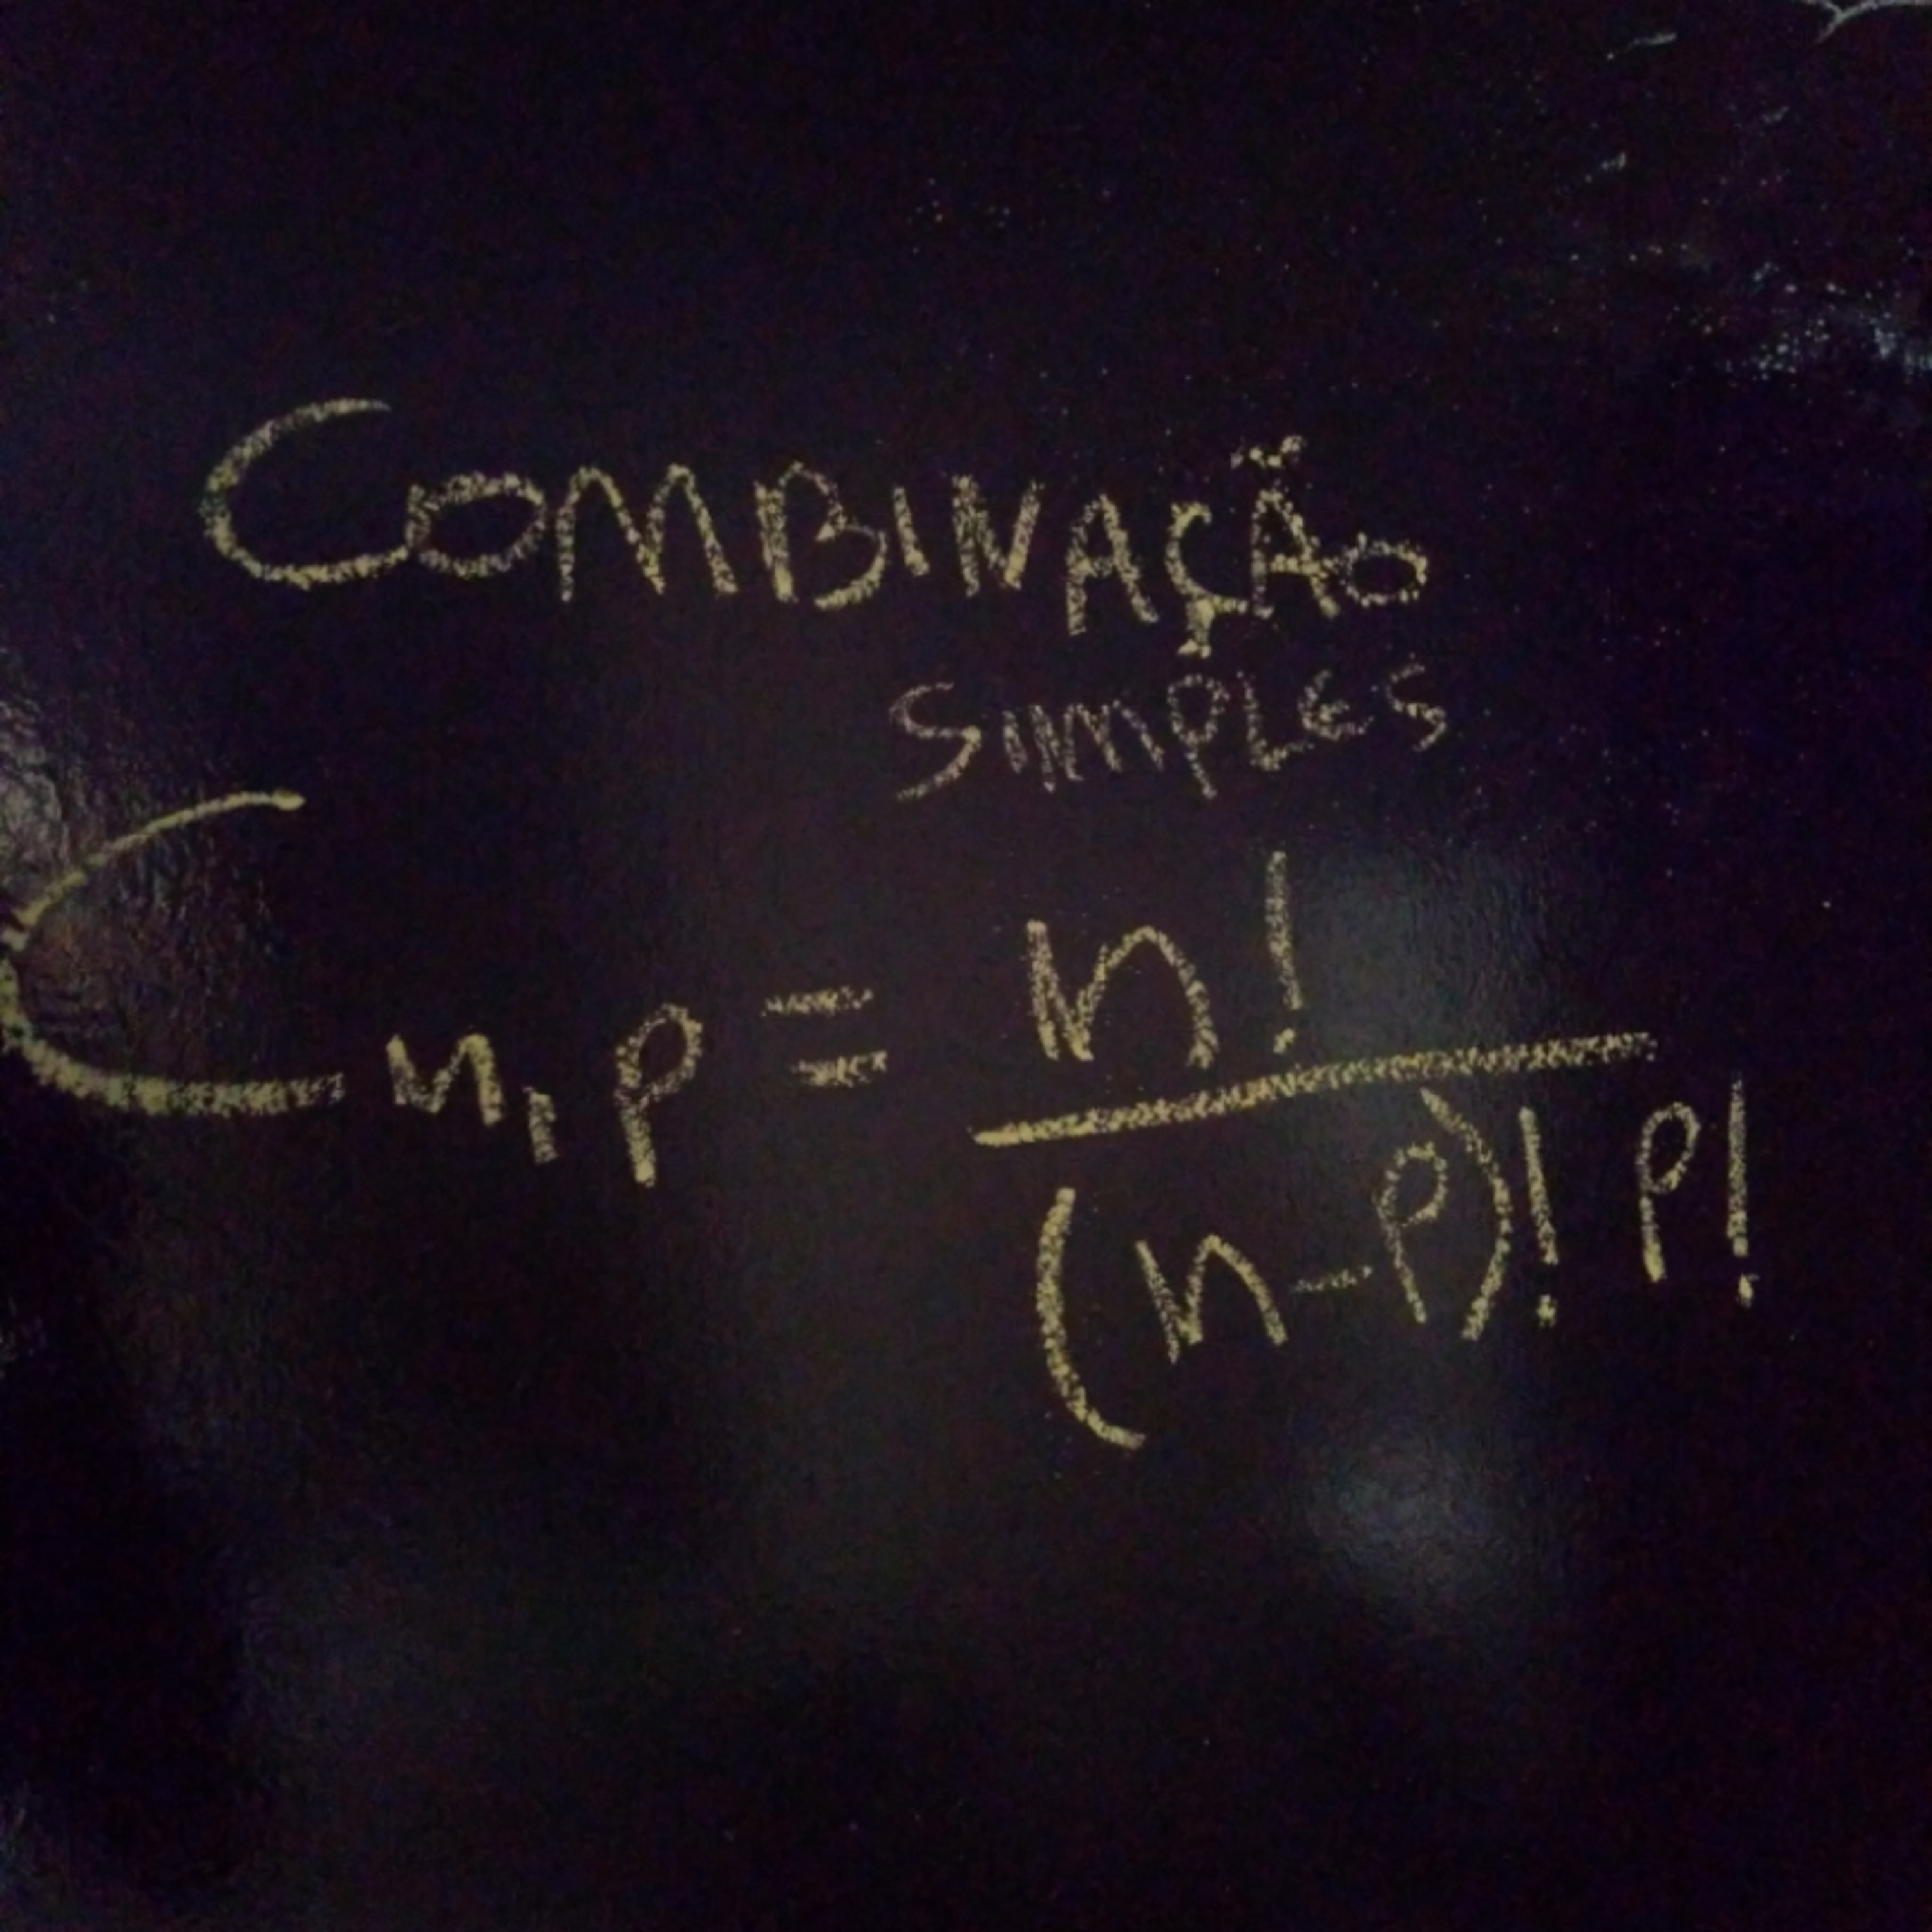 COMBINAÇÃO
SIMPLES
Cn,p = n!
(n-p)! p!